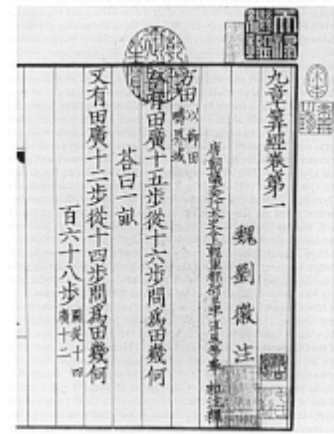 九章筭經卷第一
魏 劉 徽 注
唐朝議大夫行太史令上輕車都尉臣李淳風等奉 勑注釋
方田以御田疇界域
今有田廣十五步從十六步問為田幾何
荅曰一畝
又有田廣十二步從十四步問為田幾何
百六十八步圖從十四廣十二